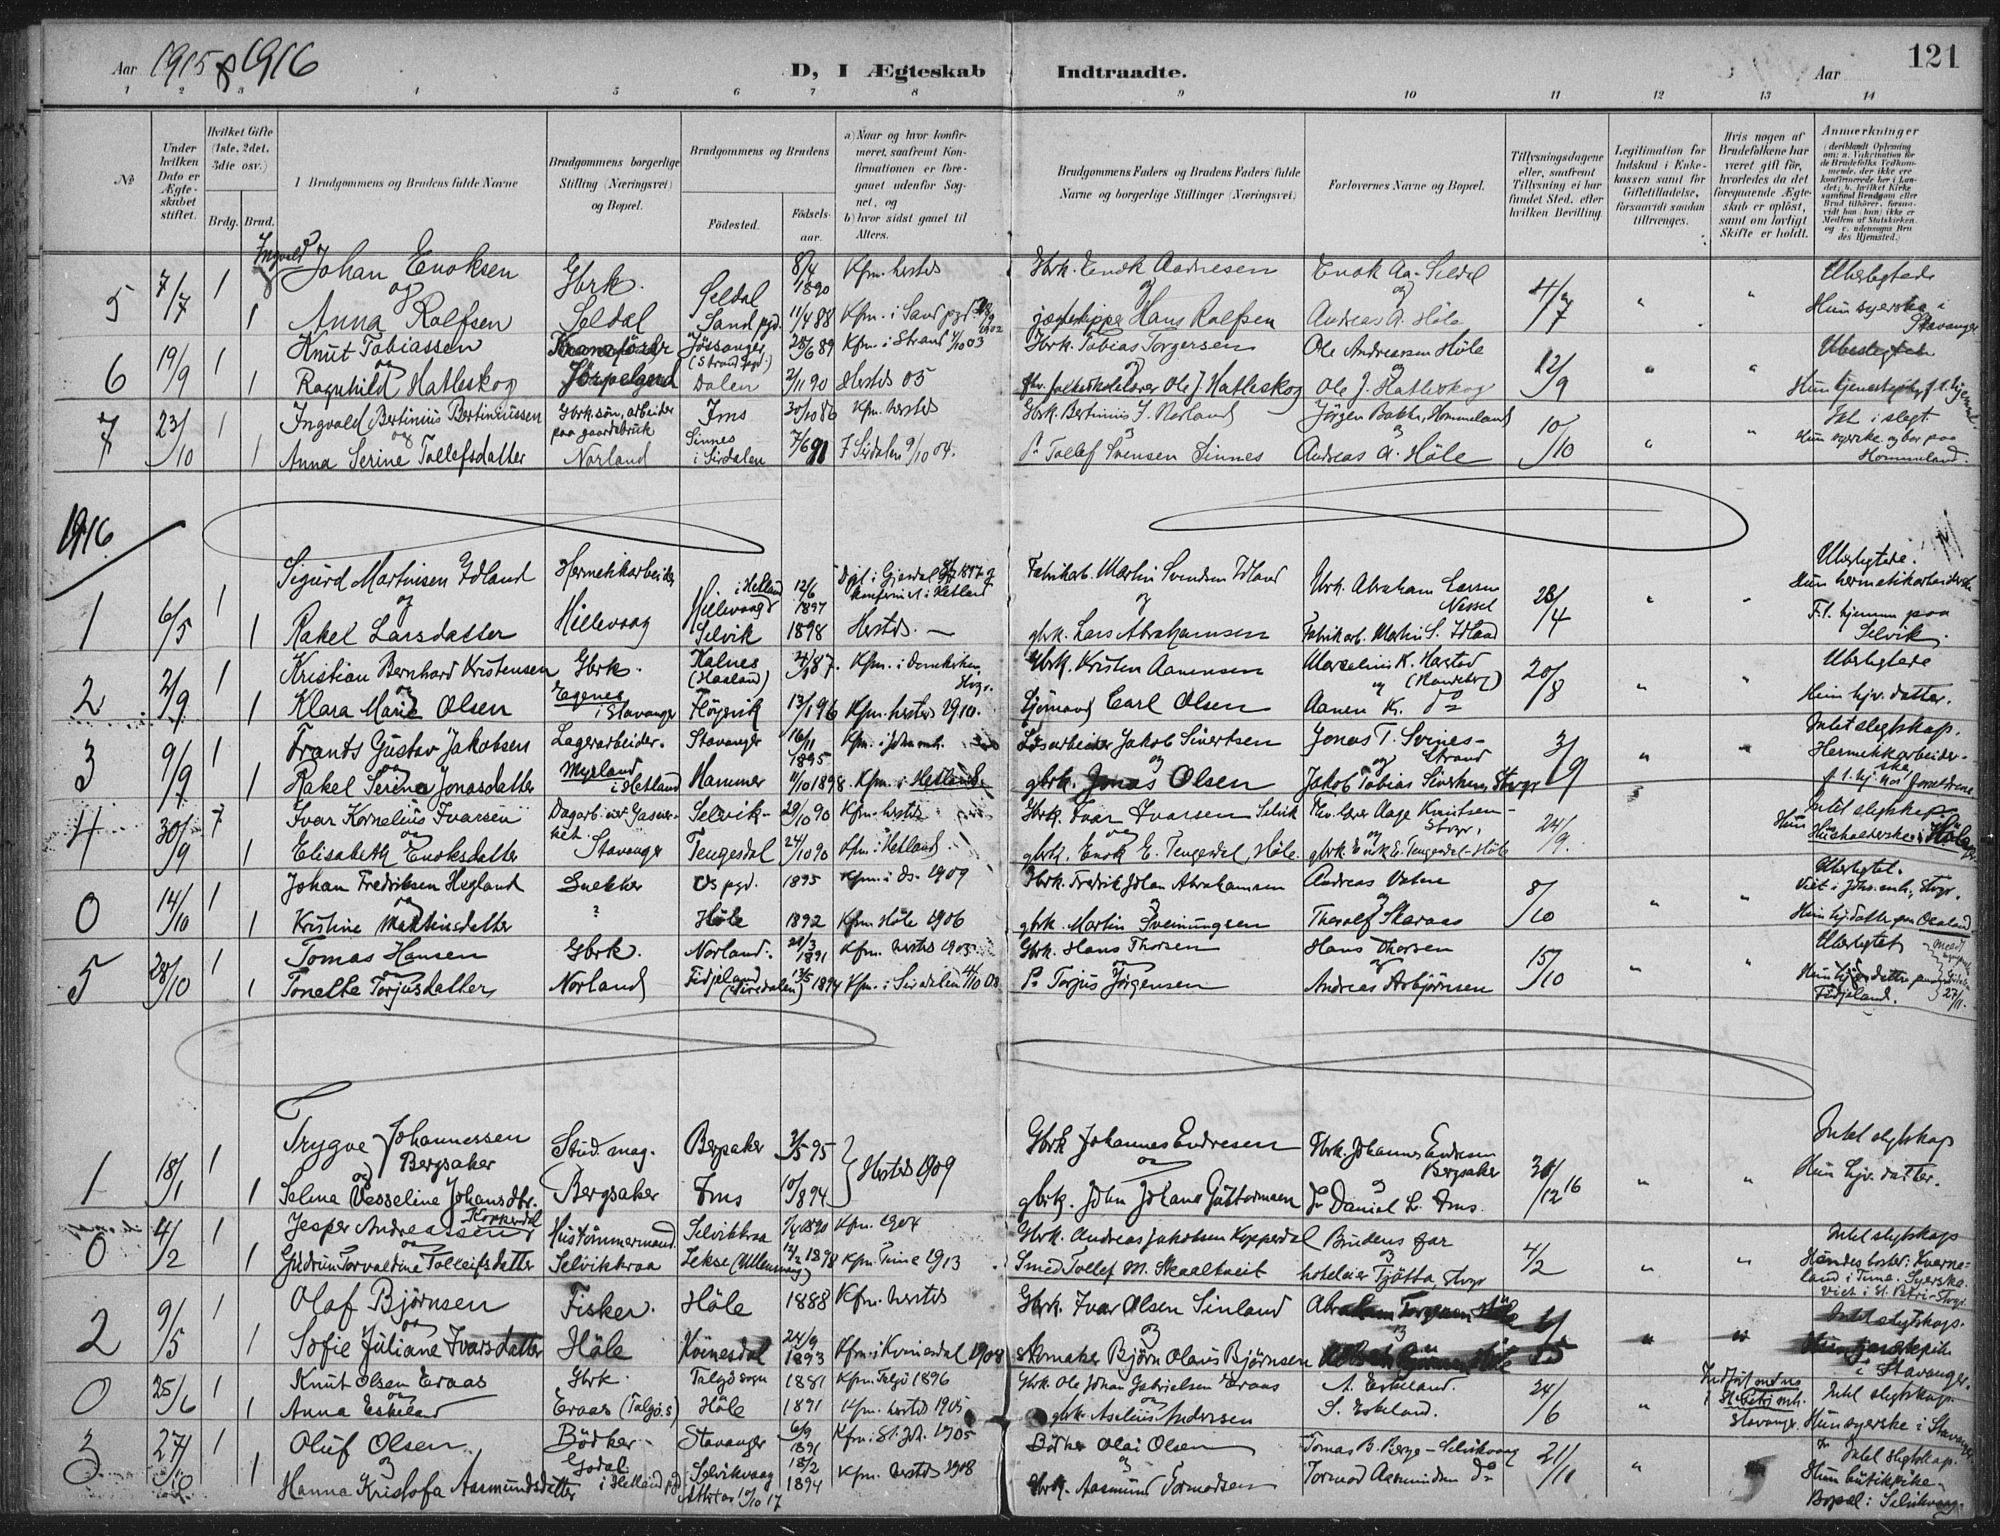 Aar 1915 & 1916
D, I Ægteskab Indtraadte.
Aar 121
1 2 3 4 5 6 7 8 9 10 11 12 13 14
№
Under hvilken Dato er Ægteskabet stiftet.
Hvilket Gifte (1ste, 2det, 3die osv.)
Brdg. Brud.
Brudgommens og Brudens fulde Navne
Brudgommens borgerlige Stilling (Næringsvei) og Bopæl.
Brudgommens og Brudens
Fødested.
Fødselsaar.
a) Naar og hvor konfirmeret, saafremt Konfirmationen er foregaaet udenfor Sognet, og
b) hvor sidst gaaet til Alters.
Brudgommens Faders og Brudens Faders fulde Navne og borgerlige Stillinger (Næringsvei)
Forlovernes Navne og Bopæl.
Tillysningsdagene eller, saafremt Tillysning ei har fundet Sted, efter hvilken Bevilling.
Legitimation for Indskud i Enkekassen samt for Giftetilladelse, forsaavidt saadan tiltrænges.
Hvis nogen af Brudefolkene har været gift før, hvorledes da det foregaaende Ægteskab er opløst, samt om lovligt Skifte er holdt.
Anmerkninger
5 7/7 1 Ingvald Johan Enoksen Gbrk. Seldal 8/4 1890 Kfm. herstds Gbrk. Enok Aadnesen Enok Aa. Seldal 4/7 " " Ubeslegtede
og
1 Anna Rolfsen Seldal Sand pgd. 11/4 88 Kfm. i Sand pgd. 1902 jægteskipper Hans Rolfsen Andreas A. Høle Hun syerske i Stavanger
6 19/9 1 Knut Tobiassen Jössanger (Strand pgd.) 28/6 89 Kfm. i Strand 4/10 03 Gbrk. Tobias Torgersen Ole Andreassen Höle 12/9 " " Ubeslegtede
og
1 Ragnhild Hatleskog Jørpeland Dalen 2/11 90 Herstds 05 fhv. folkeskolelærer Ole J. Hatleskog Ole J. Hatleskog
7 23/10 1 Ingvald Bertinius Bertinussen Gbrk.søn, arbeider paa gaardsbruk Ims 30/10 86 Kfm. herstds Gbrk. Bertinius I. Norland Jörgen Bakke, Hommeland 10/10 " " Ikke i slegt
og
1 Anna Serine Tollefsdatter Norland Sinnes i Sirdalen 7/6 91 I Sirdalen 9/10 04. P. Tollef Svensen Sinnes Andreas A. Höle Hun syerske og bor paa Hommeland.
1916
1 6/5 1 Sigurd Martinsen Idland Hermetikkarbeider Hillevaag i Hetland 12/6 1897 Döpt i Gjesdal konfirmert i Hetland Fabrikarb. Martin Svendsen Idland Gbrk. Abraham Larsen Nessel 23/4 " " Ubeslegtede. Hun hermetikarbeiderske
og
1 Rakel Larsdatter Hillevaag Selvik 1898 Herstds. gbrk. Lars Abrahamsen Fabrikarb. Martin S. Idland F.t. hjemme paa Selvik.
2 2/9 1 Kristian Bernhard Kristensen Gbrk. Kalnes (Haaland) 87. Kfm. i Domkirken Stvgr. Gbrk. Kristen Aanensen Marselius K. Harstad (Randeberg) 20/8 " " Ubeslegtede
og
1 Klara Marie Olsen Egenes i Stavanger Fløysvik 13/1 96 Kfm. herstds 1910. Sjømand Carl Olsen Aanen K. do Hun hjv. datter.
3 9/9 1 Frants Gustav Jakobsen Lagerarbeider. Stavanger 16/11 1895 Kfm. i Johs. mh. Løsarbeider Jakob Sivertsen Jonas T. Svines-Strand 3/9 " Intet slegtskap. Hermetikkarbeiderske
og
1 Rakel Serine Jonasdatter Myrland i Hetland Hammer 11/10 1898. Kfm. i Hetland. gbrk. Jonas Olsen Jakob Tobias Sivertsen, Stvgr f.t. hj. hos forældrene
4 30/9 7 Ivar Kornelius Ivarsen Dagarb. ved Gasverket. Selvik. 29/10 90 Kfm. herstds Gbrk. Ivar Ivarsen Selvik Aage Knutsen Stvgr. 24/9. Intet slegtskap.
og
1 Elisabeth Enoksdatter Stavanger Tengesdal 24/10 90 Kfm. i Hetland. gbrk. Enok E. Tengesdal, Höle. gbrk. Enok E. Tengesdal-Höle Hun Husholderske i Höle
0 14/10 1 Johan Fredriksen Hegland Snekker Os pgd. 1895 Kfm. i Os. 1909 Gbrk. Fredrik Johan Abrahamsen Andreas Vatne 8/10 " " Ubeslegtet. Viet i Johs. mh., Stvgr.
og
1 Kristine Martinsdatter ? Höle 1892 Kfm. Höle 1906 gbrk. Martin Sveinungsen Theralf Skaraas
5 28/10 1 Tomas Hansen Gbrk. Norland. 28/3 1891 Kfm. herstds 1905 Gbrk. Hans Thorsen Hans Thorsen 15/10 " " Ubeslegtet
og
1 Tonette Torjusdatter Norland Fidjeland (Siredalen) 13/5 1894 Kfm. i Siredalen 4/10 08 P. Torjus Jörgensen Andreas Asbjørnsen Hun hj. datter paa Fidjeland. 27/11.
1 18/1 1 Trygve Johannessen Bergsaker Stud. mag. Bergsaker 2/5 95 Herstds 1909 Gbrk Johannes Endresen Gbrk. Johannes Endresen Bergsaker 30/12 16 " " Intet slegtskap
og
1 Selma Vesseline Johansdtr. Bergsaker Ims 10/8 94 gbrk. John Johans Guttormsen Daniel L. Ims. Hun hjv. datter.
0 4/2 1 Jesper Andreassen Kopperdal Hustömmermand Selvikkraa 1890 Kfm. 1904 Gbrk. Andreas Jakobsen Kopperdal Brudens far 4/2 " " Intet slegtskap
og
1 Gudrun Torvaldine Tolleifsdatter Selvikkraa Lekse (Ullensvang) 14/2 1898 Kfm. Time 1913 Smed Tollef M. Skaaltveit hoteleier Tjøtta, Stvgr Hendes bosted: Kverneland i Time. Syerske. Viet i St. Petri-Stvgr.
2 9/5 1 Olaf Björnsen Fisker. Höle 1888 Kfm. herstds Gbrk. Ivar Olsen Sinland Abraham Torgersen Höle 6/5 " " Intet slegtskap.
og
1 Sofie Juliane Ivarsdatter Höle Kvinesdal 24/9 1893 Kfm. i Kvinesdal 1908 Skomaker Björn Olaus Björnsen i Stavanger.
0 25/6 1 Knut Olsen Eraas Gbrk. Talgö sogn 1881 Kfm. Talgö 1896 Gbrk. Ole Johan Gabrielsen Eraas A. Eskeland. 24/6 " Intet slegtskap.
og
1 Anna Eskeland Eraas (Talgö s) Höle 1891 Kfm. herstds 1905 gbrk. Aselius Andersen S. Eskeland. Stavanger. Hun syerske i Stavanger
3 27/10 1 Oluf Olsen Bödker Stavanger 6/9 1891 Kfm. St. Joh. 1905 Bödker Olai Olsen Tomas B. Berge-Selvikvaag 21/10 " Intet slegtskap.
og
1 Hanna Kristofa Aasmundsdatter Godal i Hetland pgd Selvikvaag 18/2 1894 Kfm. herstds 1908 Gbrk. Aasmund Tormodsen Tormod Aasmundsen do Hun butikpike. Bopæl: Selvikvaag.
Attest 10/10 17